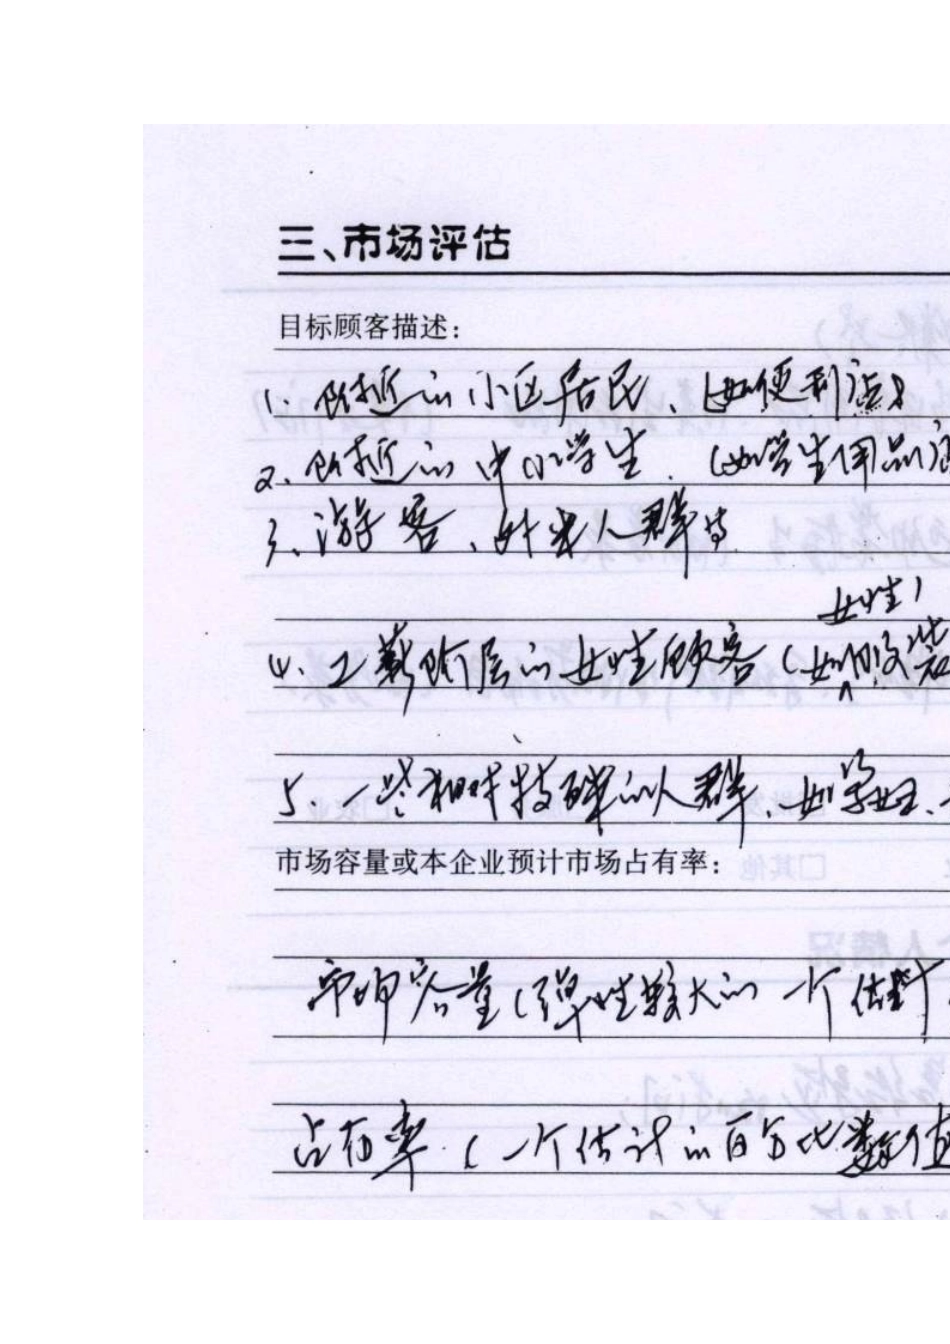 三、市场评估
目标顾客描述：
1、附近的小区居民、(如便利店)
2、附近的中小学生.（如学生用品店
3、游客、外来人群等
女性)
4、工薪阶层的女性顾客（如服装
5、一些相对特殊的人群、如孕妇、
市场容量或本企业预计市场占有率：
市场容量（弹性较大的一个估计
占有率.（一个估计的百分比数值